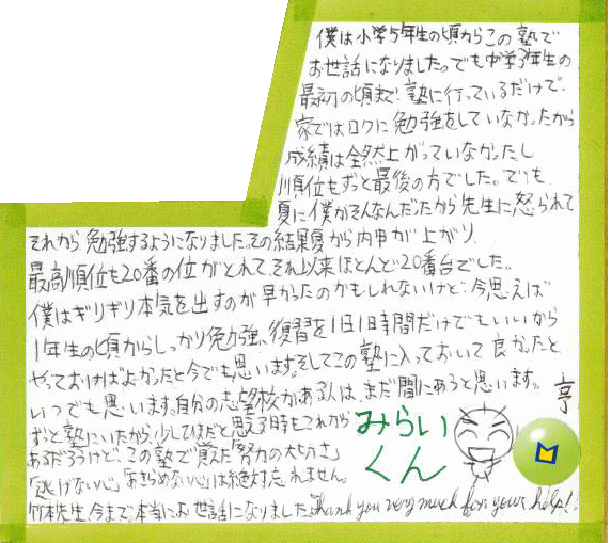 僕は小学5年生の頃からこの塾で
お世話になりました。でも中学3年生の
最初の頃まで塾に行っているだけで、
家ではロクに勉強をしていなかったから
成績は全然上がっていなかったし
順位もずっと最後の方でした。でも、
夏に僕がそんなんだったから先生に怒られて
それから、勉強するようになりました。その結果夏から内申が上がり、
最高順位も20番の位がとれて、それ以来ほとんど20番台でした。
僕はギリギリ本気を出すのが早かったのかもしれないけど、今思えば
1年生の頃からしっかり勉強、復習を1日1時間だけでもいいなら
やっておけばよかったと今でも思います。そしてこの塾に入っておいて良かったと
いつでも思います。自分の志望校がある人は、まだ間にあうと思います。
ずっと塾にいたから、少しひまだと思える時もこれから
あるだろうけど、この塾で覚えた「努力の大切さ」
「逃げない心」「あきらめない心」は絶対忘れません。
竹本先生、今まで本当にお世話になりました。Thank you very much for your help!!
亨
みらい
くん